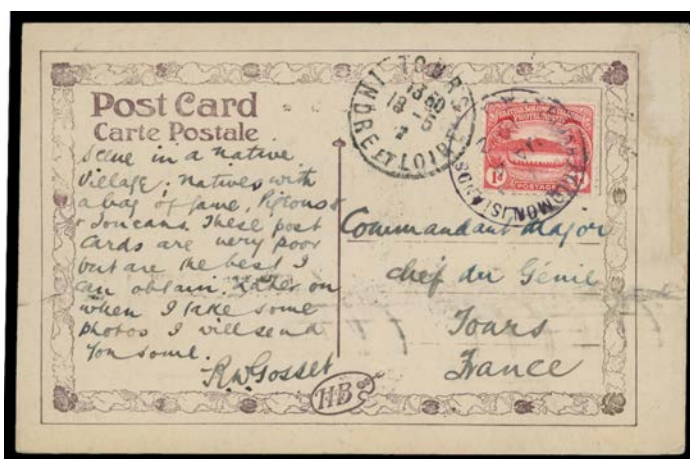 Post Card
Carte Postale
Scene in a native
village; natives with
a bag of game, Pigeons &
Toucans. These post
cards are very poor
but are the best I
can obtain. Later on
when I take some
photos I will send
you some.
R.W. Gosset
HB
TOURS
13 50
INDRE ET LOIRE
SOLOMON ISLANDS
BRITISH SOLOMON ISLANDS
PROTECTORATE
1D
POSTAGE
Commandant Major
chef du Génie
Tours
France